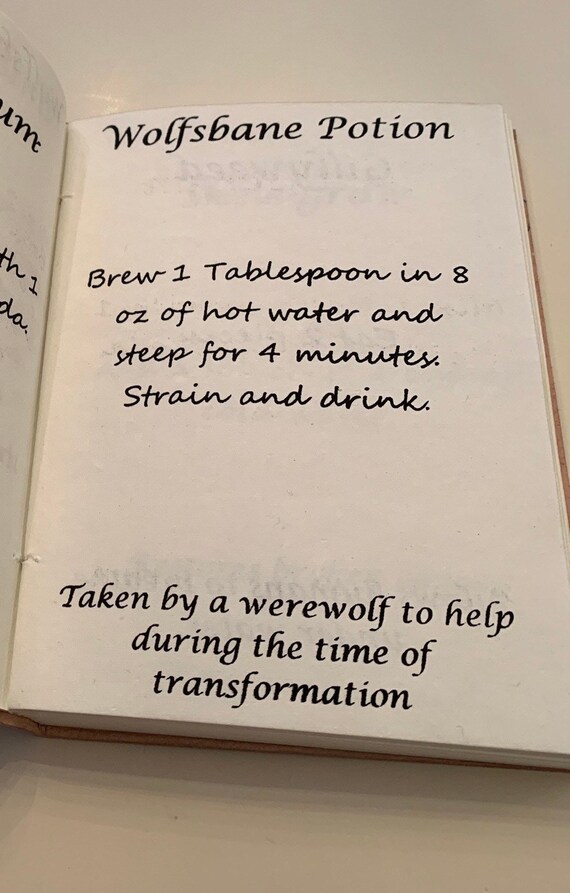 um
th 1
da.
Wolfsbane Potion
Brew 1 Tablespoon in 8
oz of hot water and
steep for 4 minutes.
Strain and drink.
Taken by a werewolf to help
during the time of
transformation